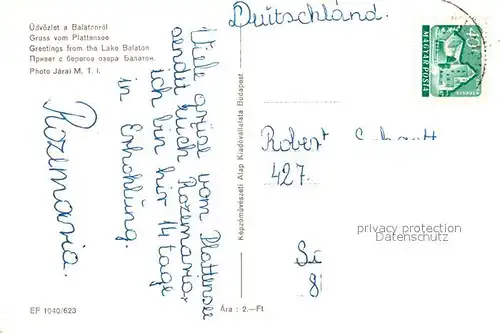 Üdvözlet a Balatonról
Gruss vom Plattensee
Greetings from the Lake Balaton
Привет с берегов озера Балатон
Photo Járai M. T. I.
Viele grüße vom Plattensee
sendet Euch Rozemaria.
ich bin hir 14 tage
in Erhohlung.
Rozemaria.
EF 1040/623
Ára : 2.—Ft
Képzőművészeti Alap Kiadóvállalata Budapest
Deutschland.
MAGYAR POSTA
Robert
427.
privacy protection
Datenschutz